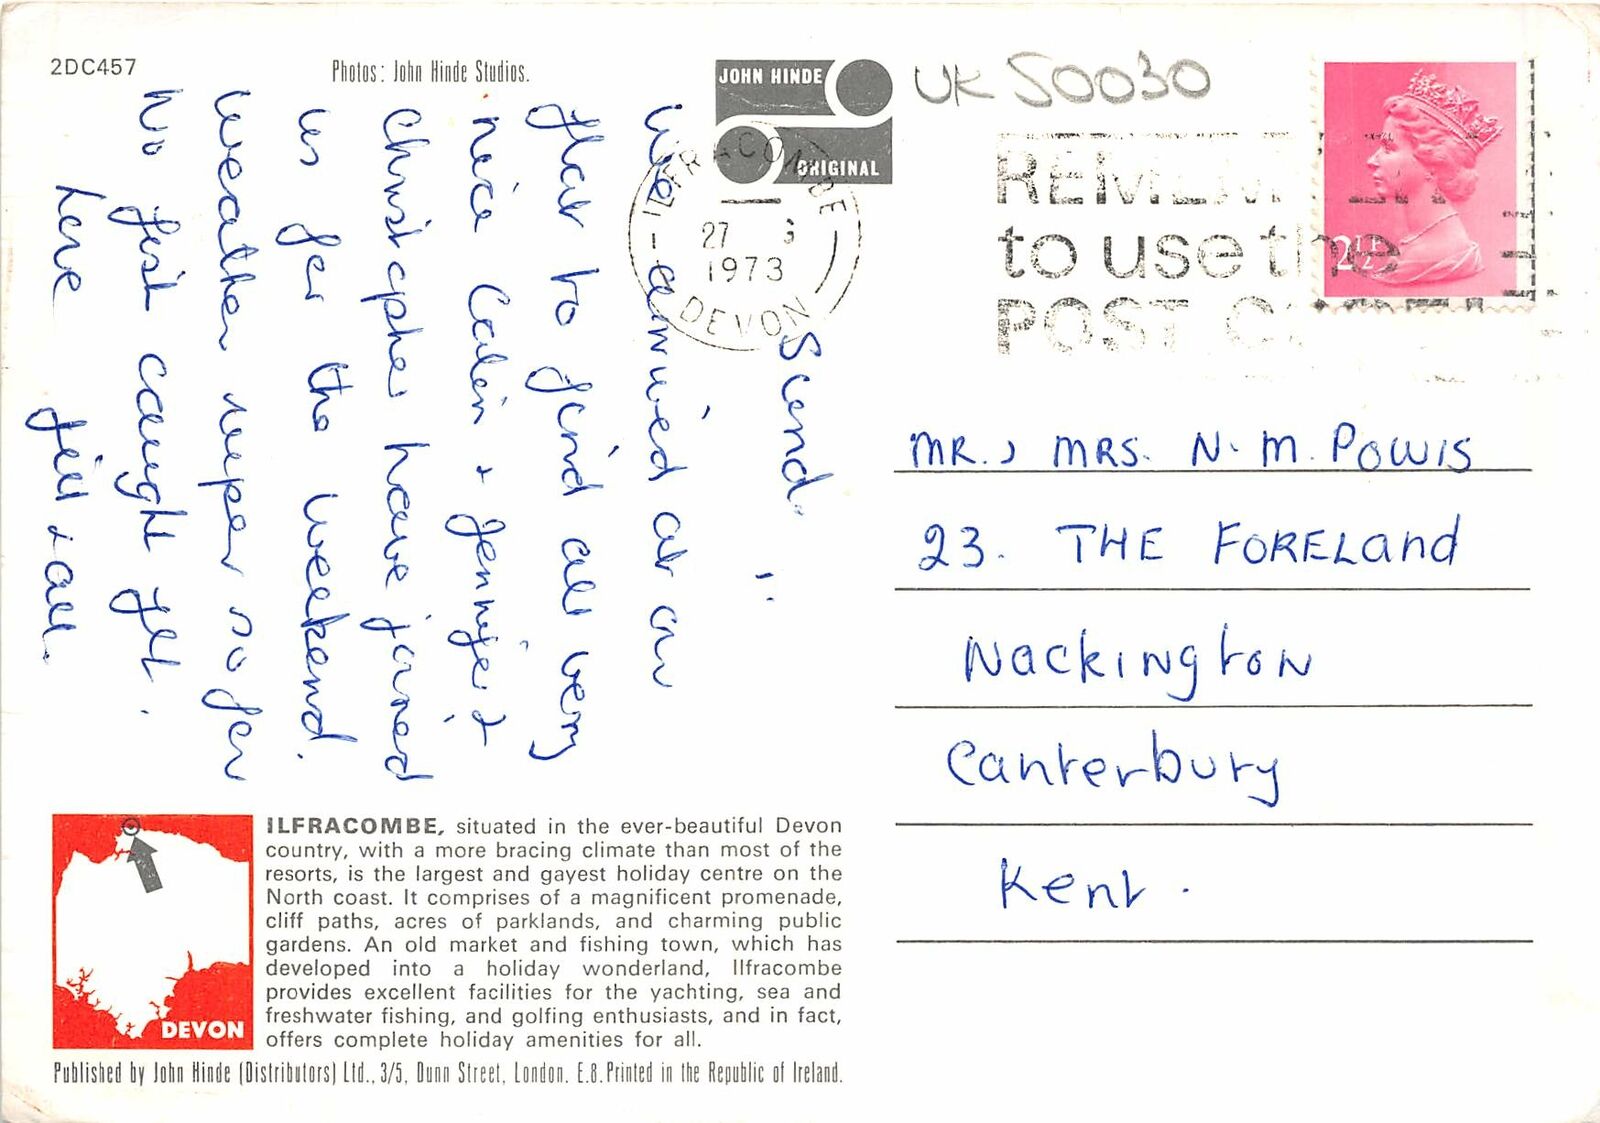 2DC457
Photos: John Hinde Studios.
JOHN HINDE
ORIGINAL
UK 50030
ILFRACOMBE
27
1973
DEVON
REMEMBER
to use the
POST C
2½P
Sund.
We arrived at our
flat to find all very
nice Colin + Jennifer &
Christopher have joined
us for the weekend.
Weather super so far
No fish caught yet.
Love
Jill & all.
MR., MRS. N. M. POWIS
23. THE FORELand
Nackington
Canterbury
Kent.
DEVON
ILFRACOMBE, situated in the ever-beautiful Devon
country, with a more bracing climate than most of the
resorts, is the largest and gayest holiday centre on the
North coast. It comprises of a magnificent promenade,
cliff paths, acres of parklands, and charming public
gardens. An old market and fishing town, which has
developed into a holiday wonderland, Ilfracombe
provides excellent facilities for the yachting, sea and
freshwater fishing, and golfing enthusiasts, and in fact,
offers complete holiday amenities for all.
Published by John Hinde (Distributors) Ltd., 3/5, Dunn Street, London. E.8. Printed in the Republic of Ireland.